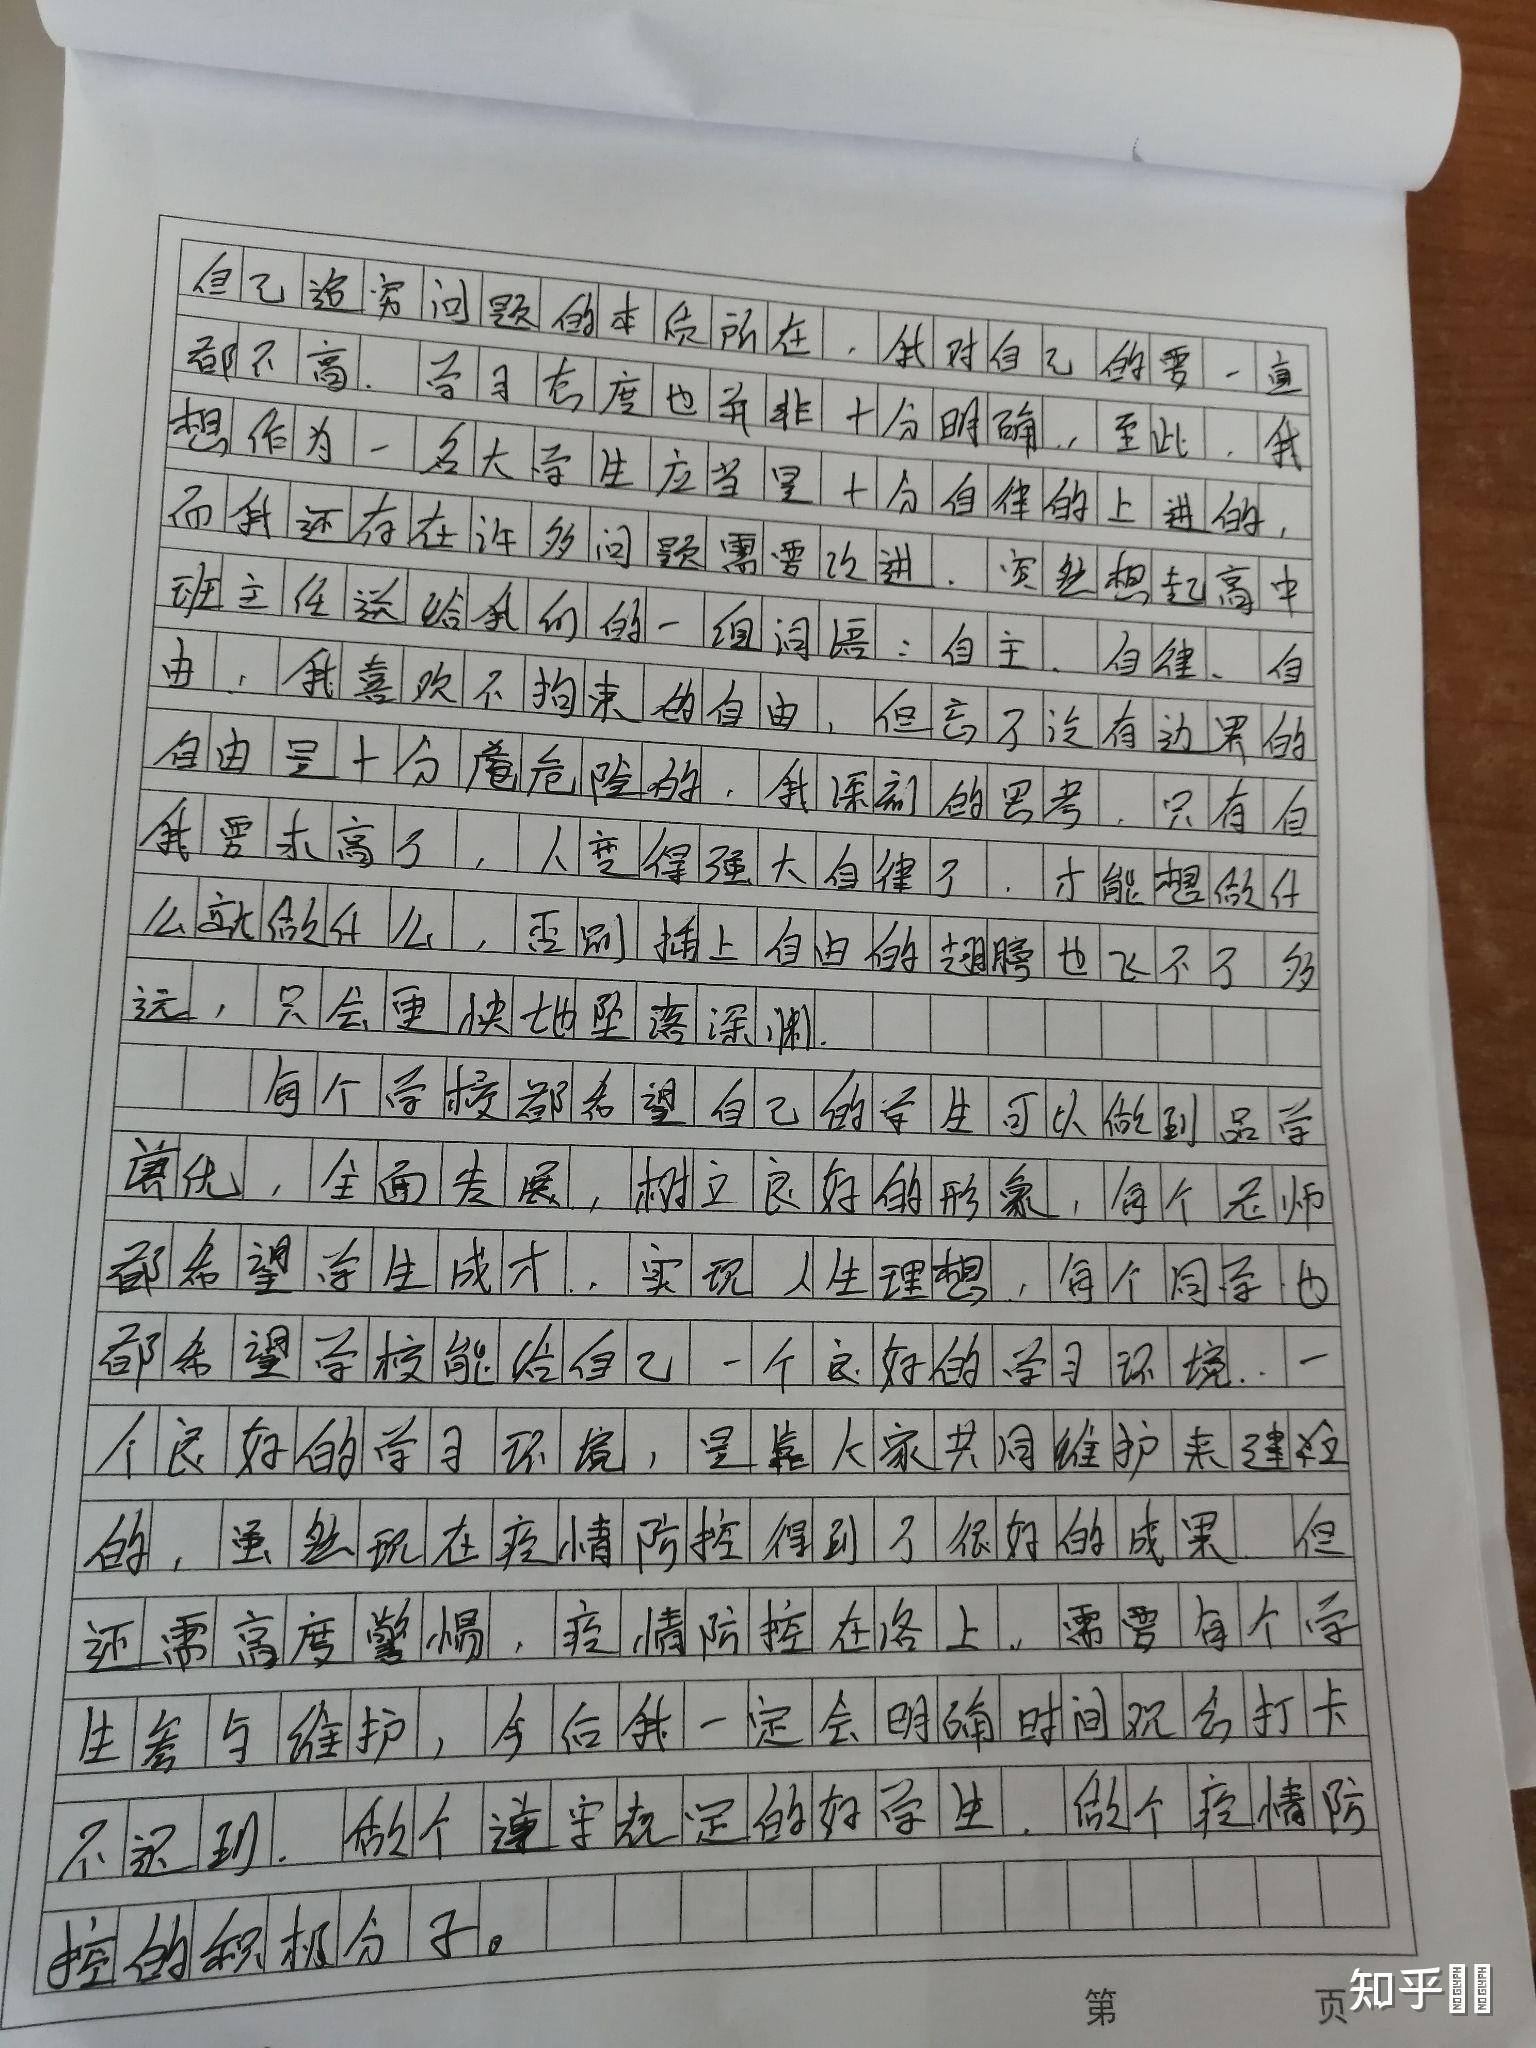 自己追穷问题的本质所在，我对自己的要一直
都不高．学习态度也并非十分明确，至此，我
想作为一名大学生应当是十分自律的上进的，
而我还存在许多问题需要改进．突然想起高中
班主任送给我们的一组词语：自主、自律、自
由，我喜欢不拘束的自由，但忘了没有边界的
自由是十分危险的，我深刻的思考，只有自
我要求高了，人变得强大自律了，才能想做什
么就做什么，否则插上自由的翅膀也飞不了多
远，只会更快地坠落深渊．
每个学校都希望自己的学生可以做到品学
兼优，全面发展，树立良好的形象，每个老师
都希望学生成才，实现人生理想，每个同学也
都希望学校能给自己一个良好的学习环境．一
个良好的学习环境，是靠大家共同维护来建设
的，虽然现在疫情防控得到了很好的成果．但
还需高度警惕，疫情防控在洛上，需要每个学
生参与维护，今后我一定会明确时间观念打卡
不迟到．做个遵守规定的好学生．做个疫情防
控的积极分子。
第 页
知乎